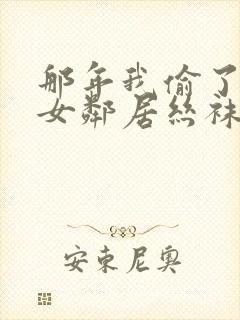 那年我偷了
女鄰居絲袜
安東尼奧